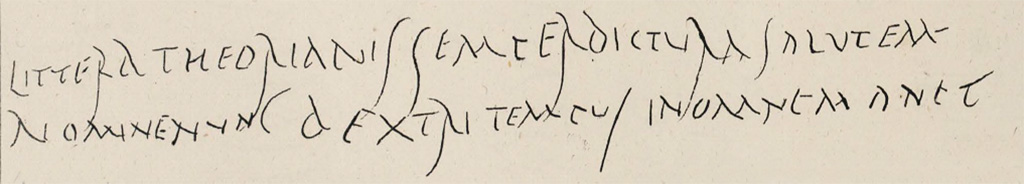 LITTERA THEORIANIS SEMPER DICTVRA SALVTEM
NOMINE NVNC DEXTRI TEMPVS IN OMNE MANET